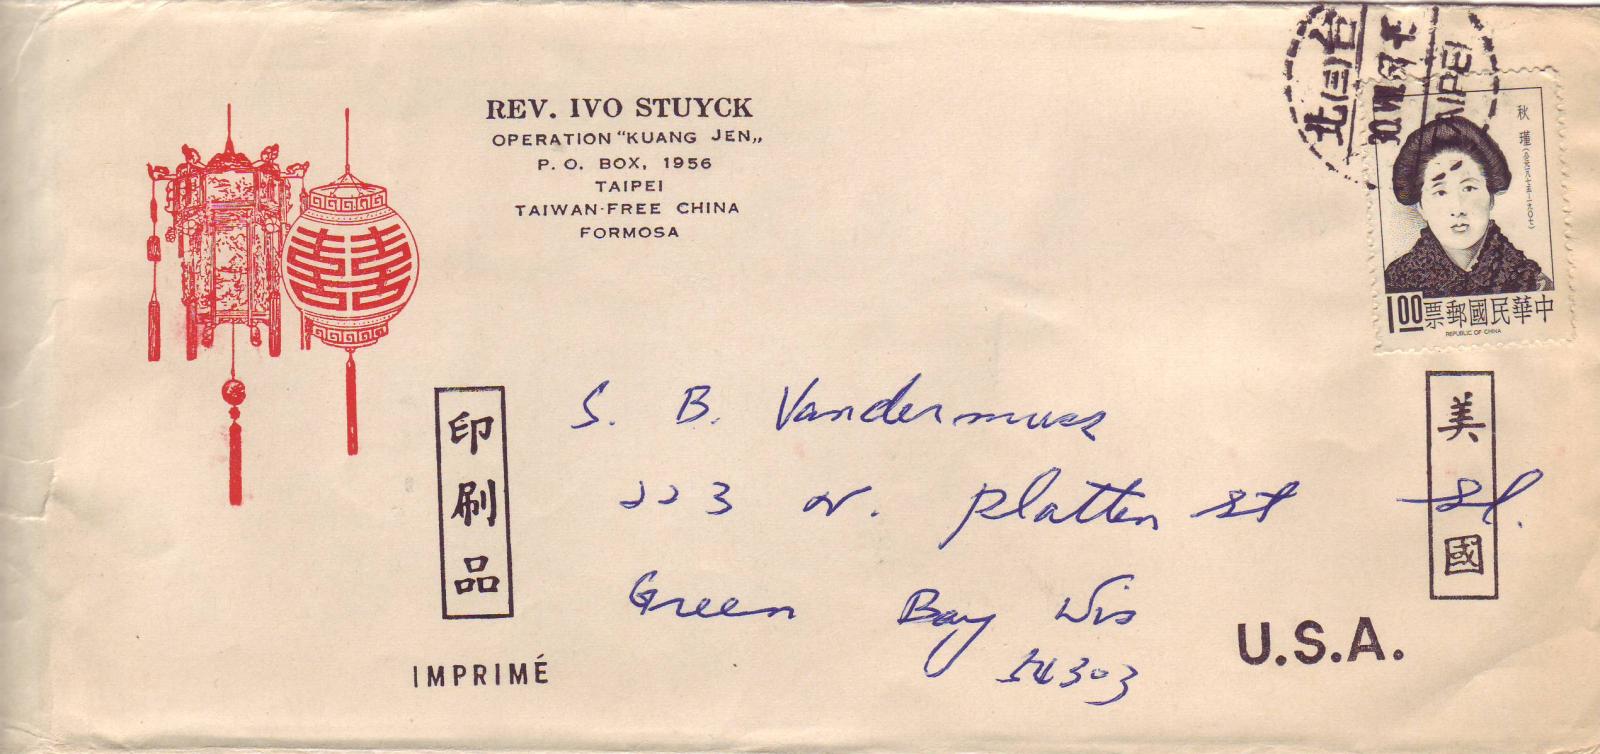 REV. IVO STUYCK
OPERATION "KUANG JEN„
P. O. BOX, 1956
TAIPEI
TAIWAN-FREE CHINA
FORMOSA
台北
TAIPEI
秋瑾
1.00 票郵國民華中
REPUBLIC OF CHINA
印刷品
IMPRIMÉ
S. B.
223 N. Platten St St.
Green Bay Wis
54303
美國
U.S.A.